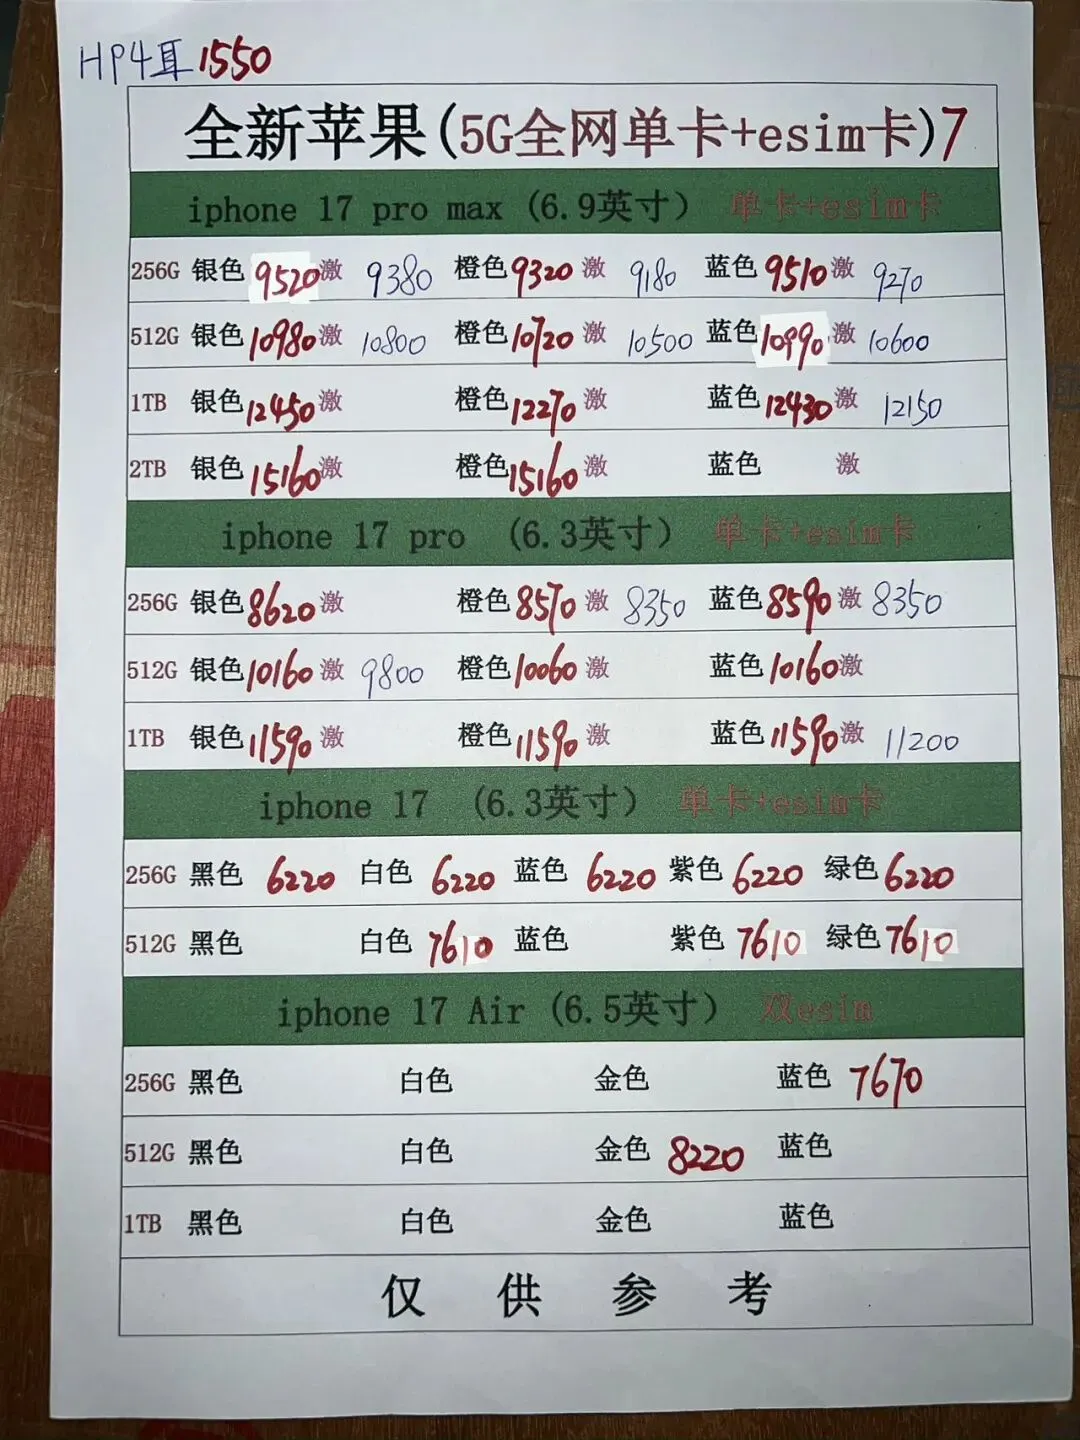 HP4耳1550
全新苹果(5G全网单卡+esim卡)7
iphone 17 pro max (6.9英寸) 单卡+esim卡
256G 银色 9520 激 9380 橙色 9320 激 9180 蓝色 9510 激 9270
512G 银色 10980 激 10800 橙色 10720 激 10500 蓝色 10990 激 10600
1TB 银色 12450 激 橙色 12270 激 蓝色 12430 激 12150
2TB 银色 15160 激 橙色 15160 激 蓝色 激
iphone 17 pro (6.3英寸) 单卡+esim卡
256G 银色 8620 激 橙色 8570 激 8350 蓝色 8590 激 8350
512G 银色 10160 激 9800 橙色 10060 激 蓝色 10160 激
1TB 银色 11590 激 橙色 11590 激 蓝色 11590 激 11200
iphone 17 (6.3英寸) 单卡+esim卡
256G 黑色 6220 白色 6220 蓝色 6220 紫色 6220 绿色 6220
512G 黑色 白色 7610 蓝色 紫色 7610 绿色 7610
iphone 17 Air (6.5英寸) 双esim
256G 黑色 白色 金色 蓝色 7670
512G 黑色 白色 金色 8220 蓝色
1TB 黑色 白色 金色 蓝色
仅供参考